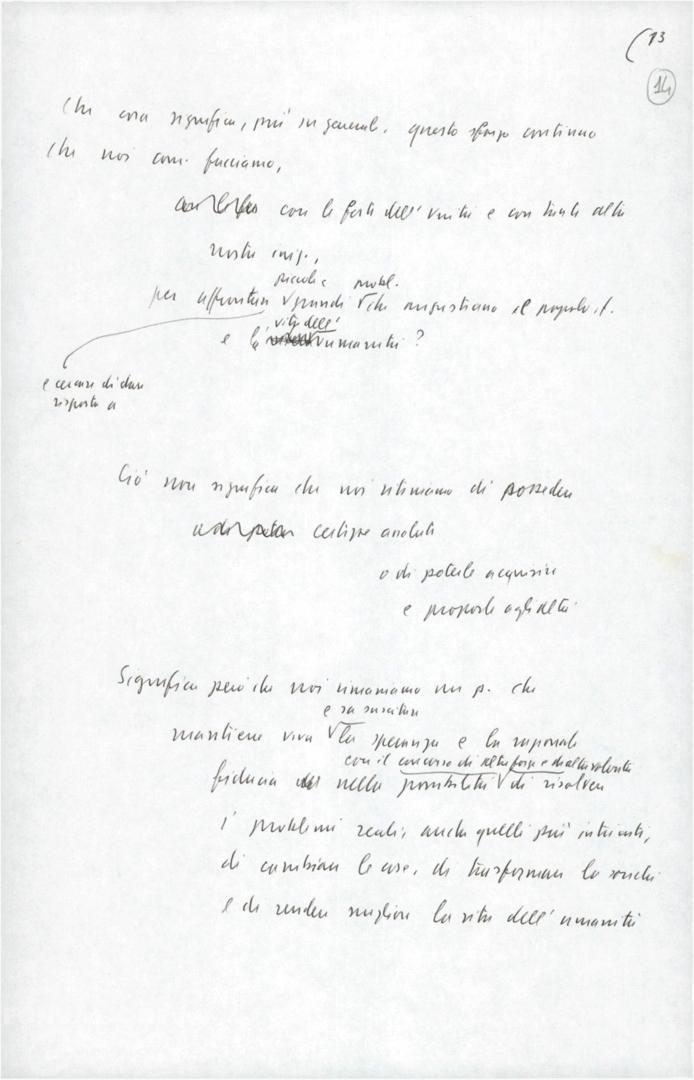 13
14
Che cosa significa, più in generale, questo sforzo continuo
che noi com. facciamo,
con le feste dell'Unità e con tante altre
nostre iniz.,
piccoli e probl.
per affrontare grandi che angustiano il popolo it.
vita dell'
e la umanità?
e cercare di dare
risposta a
Ciò non significa che noi riteniamo di possedere
certezze assolute
o di poterle acquisire
e proporle agli altri
Significa però che noi rimaniamo un p. che
e sa suscitare
mantiene viva la speranza e la razionale
con il concorso di altre forze e di altre volontà
fiducia nella possibilità di risolvere
i problemi reali, anche quelli più intricati,
di cambiare le cose, di trasformare la società
e di rendere migliore la vita dell'umanità